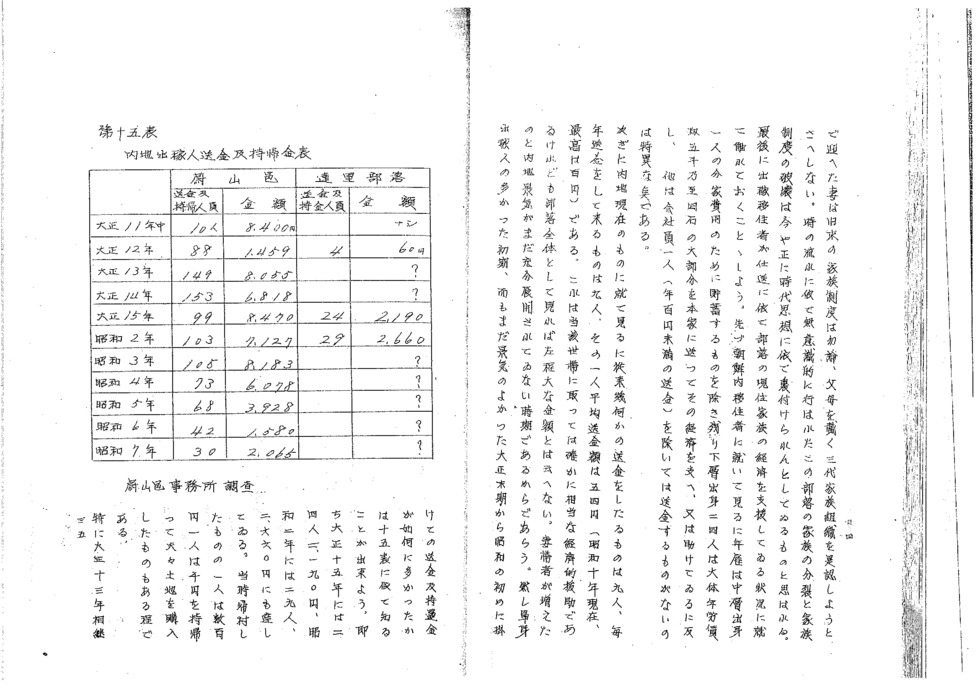 で迎へた妻は旧来の家族制度は勿論、父母を戴く三代家族組織を是認しようと
さへしない。時の流れに依て無意識的に行はれたこの部落の家族の分裂と家族
制度の破壊は今や正に時代思想に依て裏付けられんとしてゐるものと思はれる。
最後に出稼移住者が仕送に依て部落の現住家族の経済を支援してゐる状況に就
て触れておくことゝしよう。先づ朝鮮内移住者に就いて見るに年雇は中層出身
一人の分家費用のために貯蓄するものを除き残り下層出身二四人は大体年労賃
籾五千乃至四石の大部分を本家に送つてその経済を支へ、又は助けてゐるに反
し、他は会社員一人(年百円未満の送金)を除いては送金するものがないの
は特異な点である。
次ぎに内地現在のものに就て見るに従来幾何かの送金をしたるものは九人、毎
年送金をして来るものは九人、その一人平均送金額は五四円(昭和十年現在、
最高は百円)である。これは当該世帯に取つては確かに相当な経済的援助であ
るけれども部落全体として見れば左程大な金額とは云へない。妻帯者が増えた
のと内地景気がまだ充分展開されてゐない時期であるからであらう。然し単身
出稼人の多かつた初期、而もまだ景気のよかつた大正末期から昭和の初めに掛
第十五表
内地出稼人送金及持帰金表
蔚山邑 達里部落
送金及持帰人員 金額 送金及持金人員 金額
大正11年中 10人 8.400円 ナシ
大正12年 88 1.459 4 60円
大正13年 149 8.055 ?
大正14年 153 6.818 ?
大正15年 99 8.470 24 2,190
昭和2年 103 7.127 29 2.660
昭和3年 105 8.183 ?
昭和4年 73 6.078 ?
昭和5年 68 3.928 ?
昭和6年 42 1.580 ?
昭和7年 30 2.065 ?
蔚山邑事務所調査
けての送金及持還金
が如何に多かつたか
は十五表に依て知る
ことが出来よう。即
ち大正十五年には二
四人二、一九〇円、昭
和二年には二九人、
二、六六〇円にも達し
てゐる。当時帰村し
たものの一人は数百
円一人は千円を持帰
つて夫々土地を購入
したものもある程で
ある。
特に大正十三年相継
三五